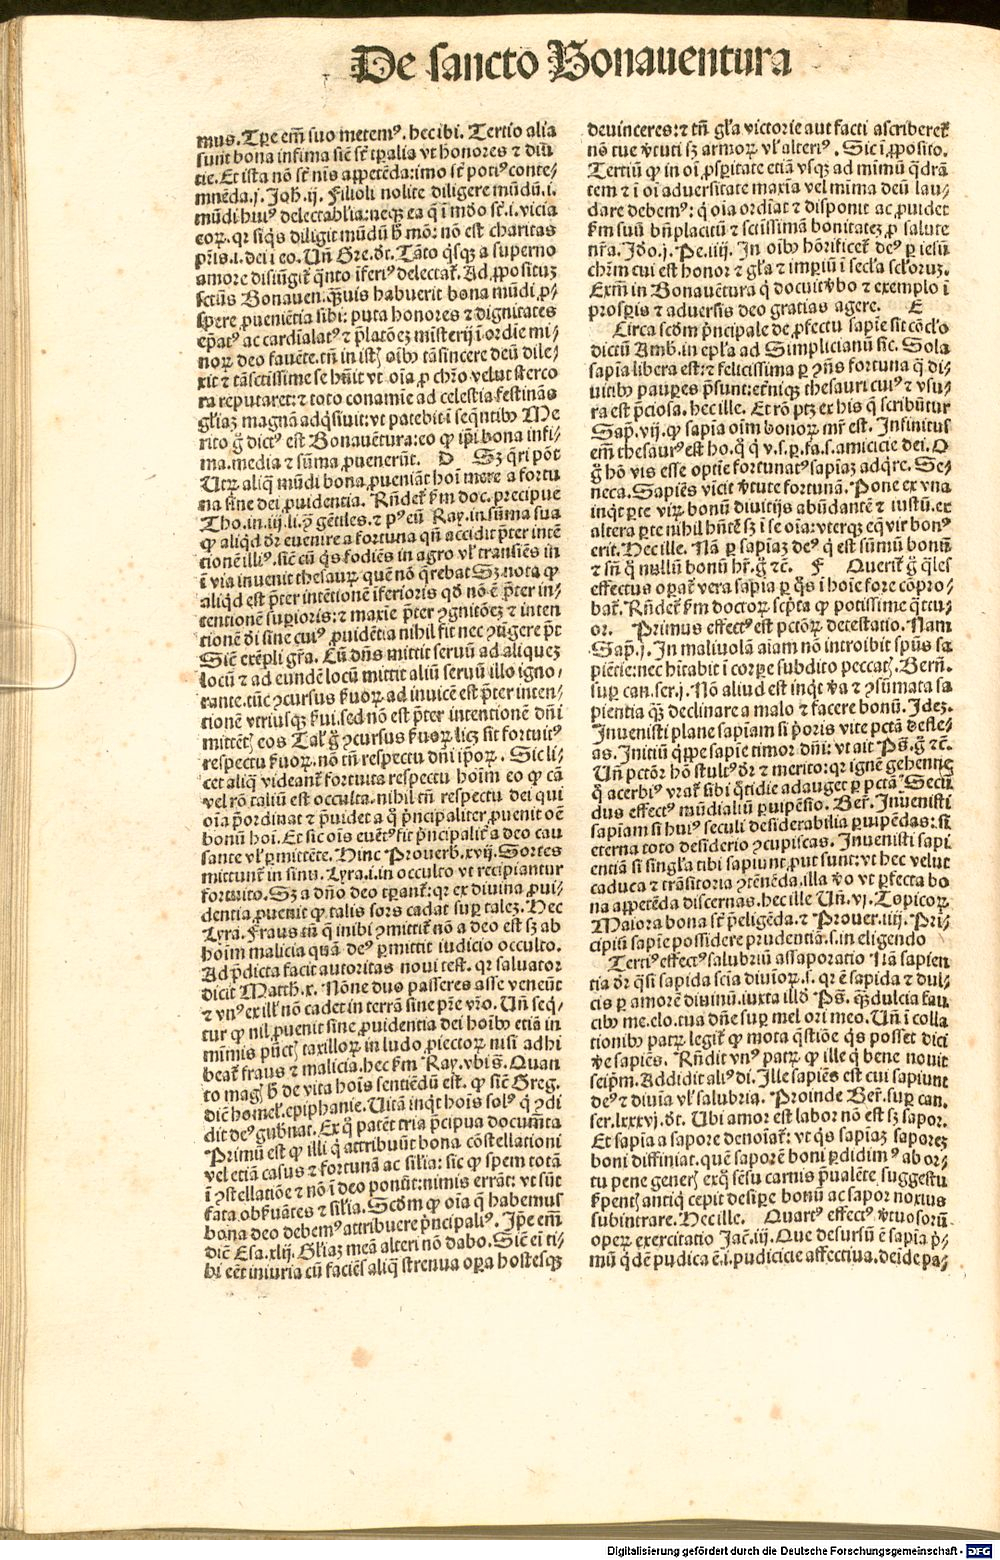 De sancto Bonauentura
mus. Tꝑe em̄ suo metemꝰ. hec ibi. Tertio alia
sunt bona infima sic̄ st̄ tp̄alia vt honores ⁊ diui⸗
tie. Et ista nō st̄ nis appetēda: imo st̄ potiꝰ conte⸗
mnēda. j. Joh̄. ij. Filioli nolite diligere mūdū. i.
mūdi huiꝰ delectabl'ia: neqꝫ ea q̄ ī mūdo st̄. i. vicia
eoꝝ. qr siq̄s diligit mūdū h̄ mō: nō est charitas
pr̄is. i. dei ī eo. Un̄ Gre. dr̄. Tāto q̄sqꝫ a superno
amore disiūgit̄ q̄nto īferiꝰ delectat̄. Ad ꝓpositūꝫ
sct̄us Bonauen. q̄uis habuerit bona mūdi ꝓ⸗
spere ꝓueniētia sibi: puta honores ⁊ dignitates
ep̄atꝰ ac cardīalatꝰ ⁊ p̄latōeꝫ misterij ī ordie mi⸗
noꝝ deo fauēte. tn̄ in istꝭ oībꝰ tā sincere deū dile⸗
xit ⁊ tā sctīssime se hūit vt oīa ꝓ chr̄o velut sterco
ra reputaret: ⁊ toto conamie ad celestia festinās
gl'iaꝫ magnā adq̄siuit: vt patebit ī seq̄ntibꝰ Me
rito g̊ dictꝰ est Bonauētura: eo ꝙ ip̄i bona infi⸗
ma. media ⁊ sūma ꝓuenerūt. D Sꝫ q̄ri pōt
Utꝝ aliq̄ mūdi bona ꝓueniāt hoī mere a fortu
na sine dei ꝓuidentia. Rn̄det̄ ẜm doc. precipue
Tho. in. iij. li. ꝯ̄ gētiles. ⁊ pꝰ eū Ray. in sūma sua
ꝙ aliq̄d dr̄ euenire a fortuna qn̄ accidit p̄ter intē
tionē illiꝰ. sic̄ cū q̄s fodiēs in agro vl' transiēs in
ī via inuenit thesauꝝ quē nō q̄rebat Sꝫ nota ꝙ
aliq̄d est p̄ter intētionē īferioris qd̄ nō ē p̄ter in⸗
tentionē supioris: ⁊ maxie p̄ter ꝯgnitōeꝫ ⁊ inten
tionē dī sine cuiꝰ ꝓuidētia nihil fit nec ꝯtīgere pt̄
Sic̄ exēpli gr̄a. Cū dn̄s mittit seruū ad aliqueꝫ
locū ⁊ ad eundē locū mittit aliū seruū illo igno⸗
rante. tūc ꝯcursus ẜuoꝝ ad inuicē est p̄ter inten⸗
tionē vtriusqꝫ ẜui. sed nō est p̄ter intentionē dn̄i
mittētꝭ eos Tal' g̊ ꝯcursus ẜuoꝝ licꝫ sit fortuitꝰ
respectu ẜuoꝝ. nō tn̄ respectu dn̄i ip̄oꝝ. Sic li⸗
cet aliq̄ videant̄ fortuita respectu hoīm eo ꝙ cā
vel rō taliū est occulta. nihil tn̄ respectu dei qui
oīa p̄ordinat ⁊ p̄uidet a q̊ p̄ncipaliter ꝓuenit oē
bonū hoī. Et sic oīs euētꝰ fit p̄ncipalit̄ a deo cau
sante vl' ꝑmittēte. Hinc Prouerb̄. xvij. Sortes
mittunt̄ in sinū. Lyra. i. in occulto vt recipiantur
fortuito. Sꝫ a dn̄o deo tꝑant̄: qr ex diuina ꝓui⸗
dentia ꝓuenit ꝙ talis sors cadat suꝑ taleꝫ. Hec
Lyra. Fraus tn̄ q̄ inibi ꝯmittit̄ nō a deo est sꝫ ab
hoīm malicia quā deꝰ ꝑmittit iudicio occulto.
Ad p̄dicta facit autoritas noui test. qr saluator
dicit Matth. x. Nōne duo passeres asse veneūt
⁊ vnꝰ ex ill' nō cadet in terrā sine pr̄e vr̄o. Un̄ seq̄⸗
tur ꝙ nil ꝓuenit sine ꝓuidentia dei hoībꝰ etiā in
mīmis pūctꝭ taxilloꝝ in ludo ꝓiectoꝝ nisi adhi
beat̄ fraus ⁊ malicia. hec ẜm Ray. vbi s̄. Quan
to magꝭ h̄ de vita hoīs sentiēdū est. ꝙ sic̄ Greg.
dic̄ homel'. epiphanie. Uitā inq̄t hoīs solꝰ q̄ ꝯdi
dit deꝰ gub̄nat. Ex q̊ patēt tria p̄cipua documēta
Primū est ꝙ illi q̄ attribuūt bona cōstellationi
vel etiā casus ⁊ fortunā ac sil'ia: sic ꝙ spem totā
ī ꝯstellatiōe ⁊ nō ī deo ponūt: nimis errāt: vt sūt
fata obẜuātes ⁊ sil'ia. Scd̄m ꝙ oīa q̄ habemus
bona deo debemꝰ attribuere p̄ncipaliꝰ. Ip̄e em̄
dic̄ Esa. xlij. Gl'iaꝫ meā alteri nō dabo. Sic̄ ei ti⸗
bi eēt iniuria cū faciēs aliq̄ strenua oꝑa hostesqꝫ
deuinceres: ⁊ tn̄ gl'a victorie aut facti ascriberet̄
nō tue v̄tuti sꝫ armoꝝ vl' alteriꝰ. Sic ī ꝓposito.
Tertiū ꝙ in oī ꝓsꝑitate etiā vsqꝫ ad mīmū q̄drā
tem ⁊ ī oī aduersitate maxīa vel mīma deū lau⸗
dare debemꝰ: q̄ oīa ordīat ⁊ disponit ac ꝓuidet
ẜm suū bn̄placitū ⁊ sctīssimā bonitateꝫ ꝓ salute
nr̄a. Jdo. j. Pe. iiij. In oībꝰ hōrificet̄ deꝰ ꝑ iesū
chr̄m cui est honor ⁊ gl'a ⁊ imꝑiū ī secl'a secl'oruꝫ.
Exm̄ in Bonauētura q̄ docuit v̄bo ⁊ exemplo ī
prosꝑis ⁊ aduersis deo gratias agere. E
Circa scd̄m p̄ncipale de ꝓfectu sapīe sit cōcl'o
dictū Amb̄. in epl'a ad Simplicianū sic. Sola
sapīa libera est: ⁊ felicissima ꝑ ꝯn̄s fortuna q̄ di⸗
uitibꝰ pauꝑes p̄sunt: etniqꝫ thesauri cuiꝰ ⁊ vsu⸗
ra est p̄ciosa. hec ille. Et rō ptꝫ ex his q̄ scribūtur
Sap̄. vij. ꝙ sapīa oīm bonoꝝ mr̄ est. Infinitus
em̄ thesaurꝰ est ho. q̊ q̄ v. s. ꝑ. fa. s. amicicie dei. O
g̊ hō vis esse optīe fortunatꝰ sapīaꝫ adq̄re. Se⸗
neca. Sapiēs vicit v̄tute fortunā. Pone ex vna
inq̄t ꝑte viꝝ bonū diuitijs abūdantē ⁊ iustū. ex
altera ꝑte nihil hn̄tē sꝫ ī se oīa: vterqꝫ eq̄ vir bonꝰ
erit. Hec ille. Nā ꝑ sapīaꝫ deꝰ q̄ est sūmū bonū
⁊ sn̄ q̊ nullū bonū hr̄. g̊ ⁊c̄. F Querit̄ g̊ q̄les
effectus oꝑat̄ vera sapīa ꝑ q̊s ī hoīe fore cōpro⸗
bat̄. Rn̄det̄ ẜm doctoꝝ scp̄ta ꝙ potissime q̄ttu⸗
or. Primus effectꝰ est pctōꝝ detestatio. Nam
Sap̄. j. In maliuolā aīam nō introibit spūs sa
piētie: nec hītabit ī corꝑe subdito peccatꝭ. Bern̄.
suꝑ can. ser. j. Nō aliud est inq̄t v̄a ⁊ ꝯsūmata sa
pientia q̄ꝫ declinare a malo ⁊ facere bonū. Jdeꝫ.
Inuenisti plane sapīam si p̄oris vite pctā defle⸗
as. Initiū q̄ppe sapīe timor dn̄i: vt ait Ps̄. g̊ ⁊c̄.
Un̄ pctōr hō stultꝰ dr̄ ⁊ merito: qr ignē gehenne
q̊ acerbiꝰ vrat̄ sibi q̄tidie adauget ꝑ pctā Secū
dus effectꝰ mūdialiū ꝑuipēsio. Ber̄. Inuenisti
sapīam si huiꝰ seculi desiderabilia ꝑuipēdas: si
eterna toto desiderio ꝯcupiscas. Inuenisti sapī
entiā si singl'a tibi sapiunt ꝓut sunt: vt hec velut
caduca ⁊ trāsitoria ꝯtēnēda, illa v̄o vt ꝑfecta bo
na appetēda discernas. hec ille Un̄. vj. Topicoꝝ.
Maiora bona st̄ p̄eligēda. ⁊ Prouer. iiij. Pri⸗
cipiū sapīe possidere prudentiā. s. in eligendo
Tertiꝰ effectꝰ salubriū assaporatio Nā sapien
tia dr̄ q̄si sapida scīa diuīoꝝ. s. qr ē sapida ⁊ dul⸗
cis ꝑ amorē diuinū. iuxta illd̄ Ps̄. q̄ꝫ dulcia fau
cibꝰ me. elo. tua dn̄e suꝑ mel ori meo. Un̄ ī colla
tionibꝰ patꝝ legit̄ ꝙ mota q̄stiōe q̊s posset dici
v̄e sapiēs. Rn̄dit vnꝰ patꝝ ꝙ ille q̄ bene nouit
seip̄m. Addidit aliꝰ di. Ille sapiēs est cui sapiunt
deꝰ ⁊ diuīa vl' salubria. Proinde Ber̄. suꝑ can.
ser. lxxxvj. dr̄. Ubi amor est labor nō est sꝫ sapor.
Et sapīa a sapore denoīat̄: vt q̄s sapīaꝫ saporeꝫ
boni diffiniat. quē saporē boni ꝑdidimꝰ ab or⸗
tu pene generꝭ exq̊ sēsu carnis p̄ualēte suggestu
ẜpentꝭ antiq̄ cepit desipe bonū ac sapor noxius
subintrare. Hec ille. Quartꝰ effectꝰ v̄tuosorū
opeꝝ exercitatio Jac̄. iij. Que desursū ē sapīa p̄⸗
mū q̄dē pudica ē. i. pudicicie affectiua. deīde pa⸗
Digitalisierung gefördert durch die Deutsche Forschungsgemeinschaft - DFG